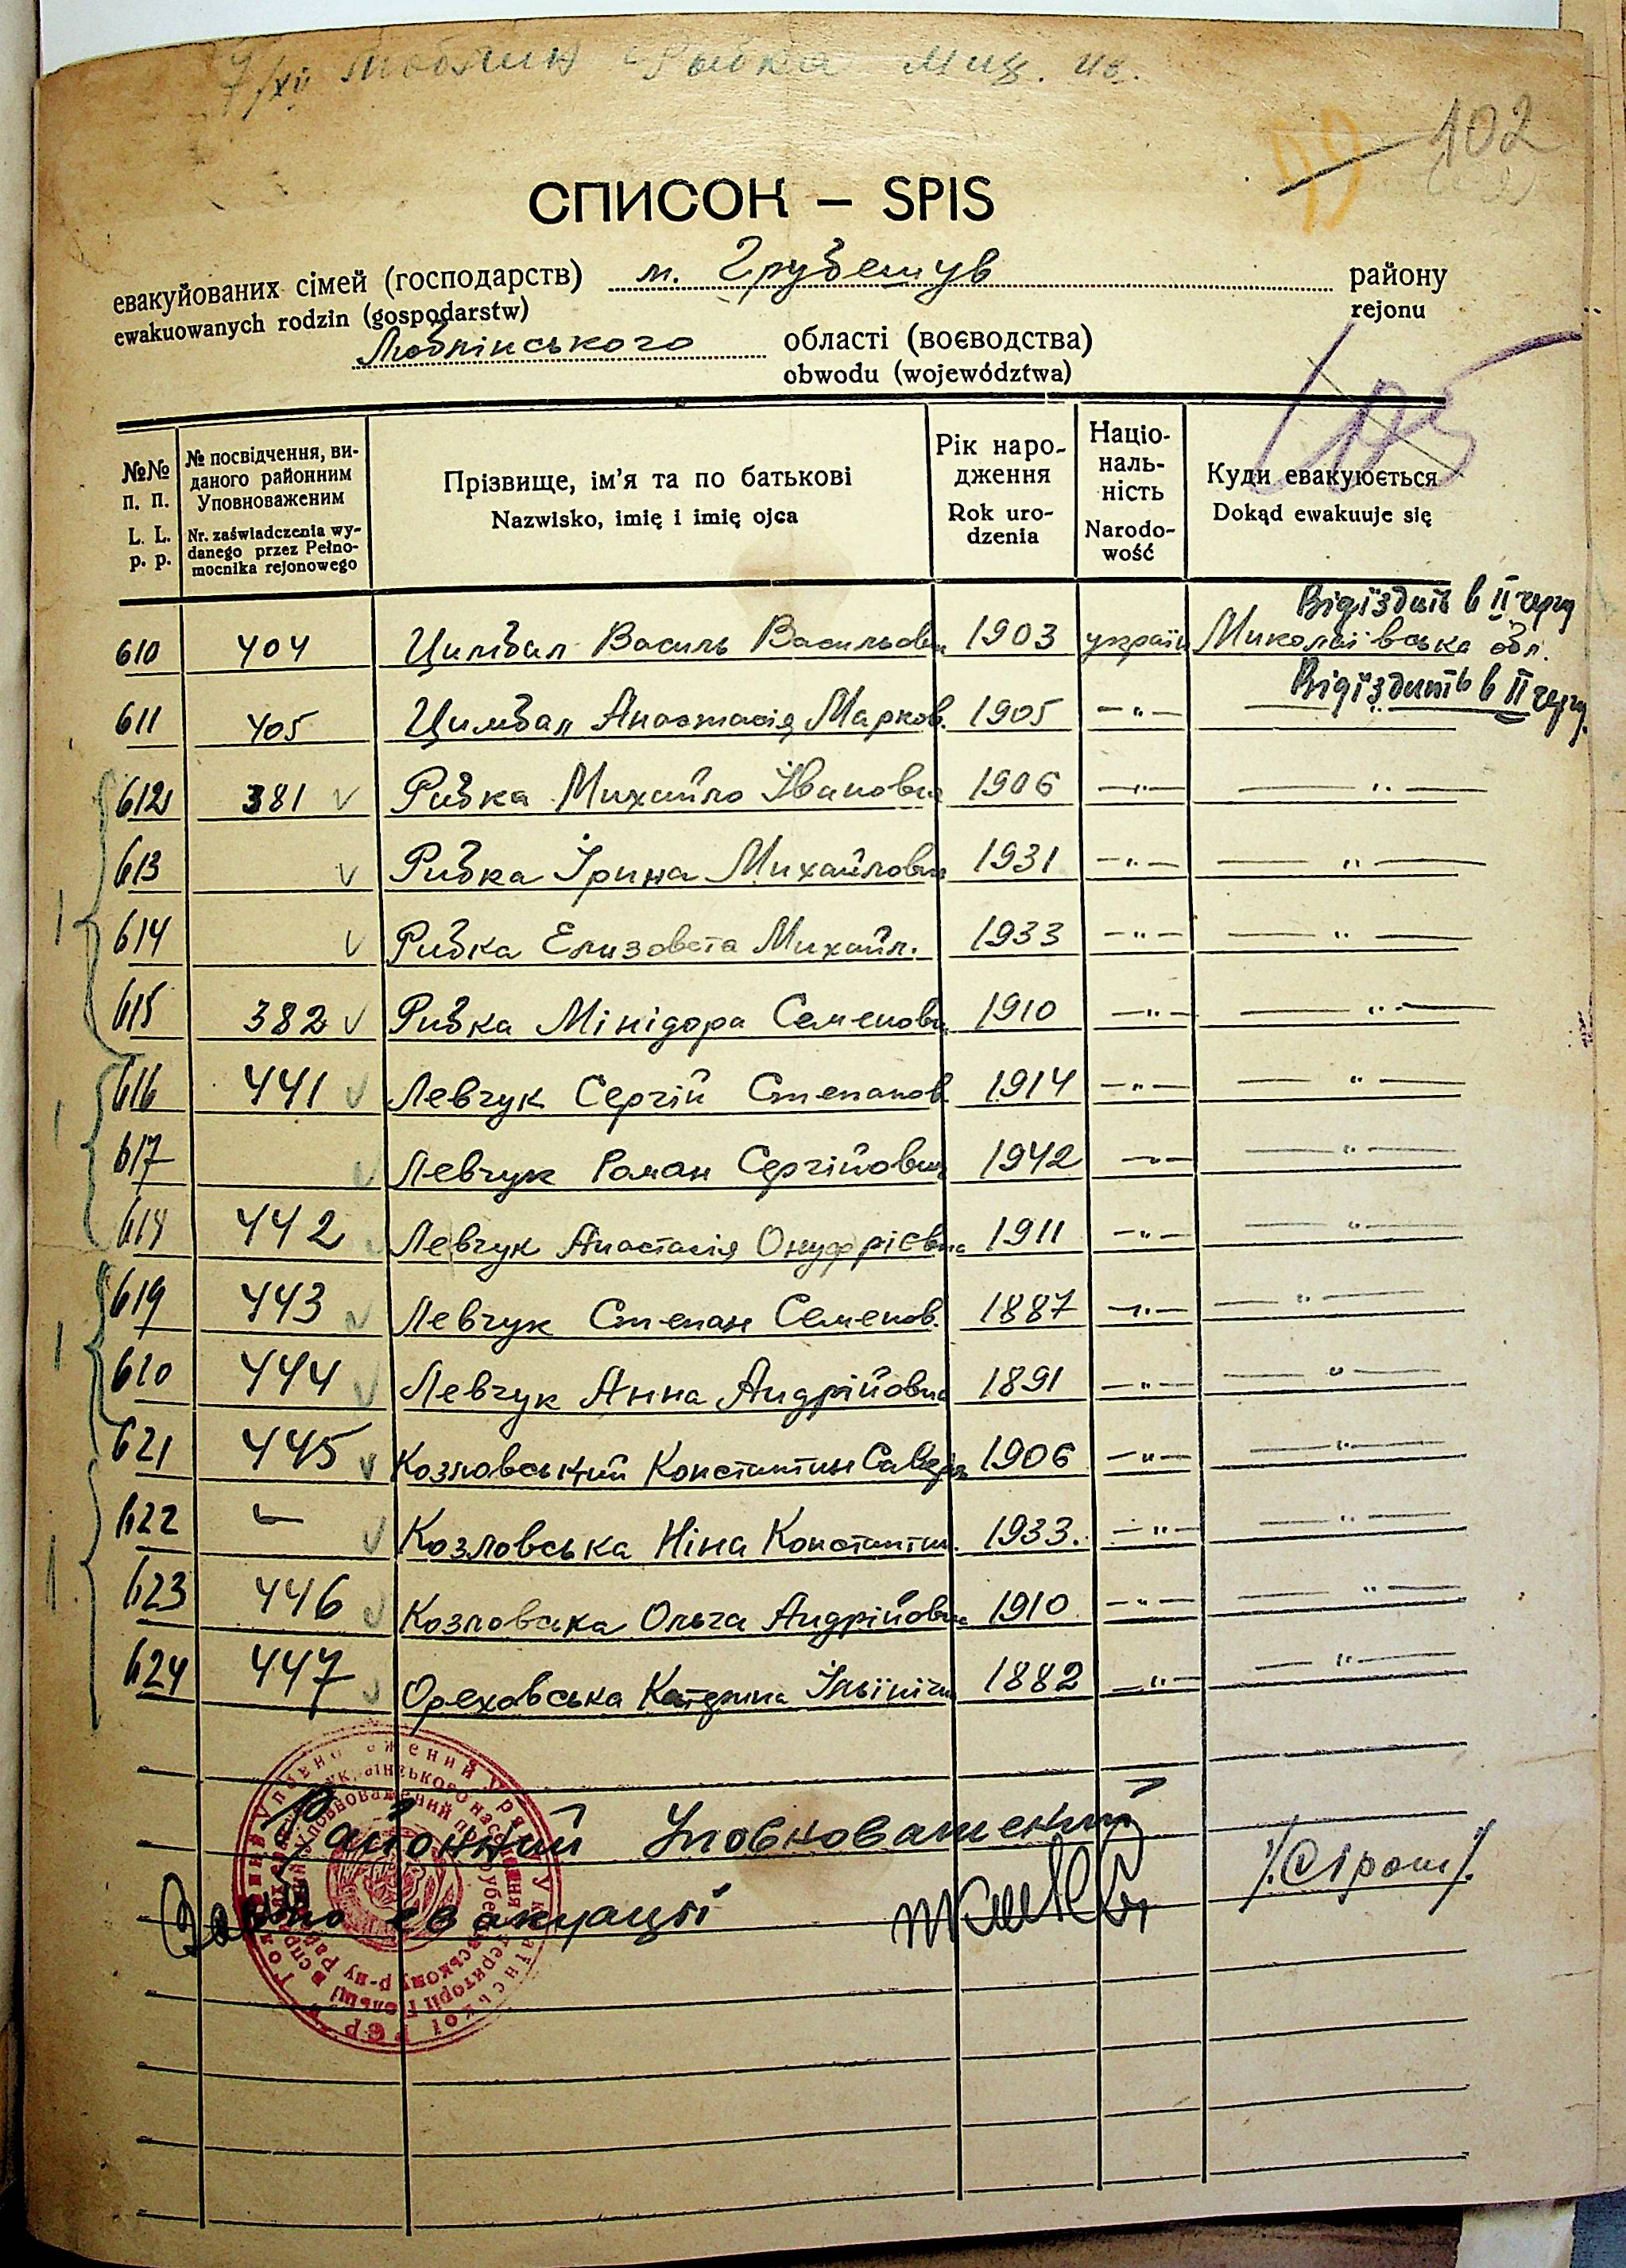 7/XII Рыбка Мих. Ив.
99 102
СПИСОК – SPIS
евакуйованих сімей (господарств) м. Грубешув району
ewakuowanych rodzin (gospodarstw) rejonu
Люблінського області (воєводства)
obwodu (województwa)
№№ п. п. L. L. p. p.
№ посвідчення, виданого районним Уповноваженим Nr. zaświadczenia wydanego przez Pełnomocnika rejonowego
Прізвище, ім'я та по батькові Nazwisko, imię i imię ojca
Рік народження Rok urodzenia
Національність Narodowość
Куди евакуюється Dokąd ewakuuje się
Відїздить в II чергу
610 404 Цимбал Василь Васильови 1903 україн Миколаївська обл.
Відїздить в II чергу.
611 405 Цимбал Анастасія Марков. 1905 –"–
612 381 v Рибка Михайло Іванович 1906 –"– –"–
613 v Рибка Ірина Михайловн 1931 –"– –"–
614 v Рибка Елизовета Михайл. 1933 –"– –"–
615 382 v Рибка Мінідора Семеновн 1910 –"– –"–
616 441 v Левчук Сергій Степанов 1914 –"– –"–
617 v Левчук Роман Сергійович 1942 –"– –"–
618 442 Левчук Анастасія Онуфрієвна 1911 –"– –"–
619 443 v Левчук Степан Семенов. 1887 –"– –"–
620 444 v Левчук Анна Андрійовна 1891 –"– –"–
621 445 v Козловський Константин 1906 –"– –"–
622 – v Козловська Ніна Константин. 1933. –"– –"–
623 446 v Козловська Ольга Андрійовна 1910 –"– –"–
624 447 v Ореховська Катерина Ільінічн 1882 –"– –"–
Районний Уповноважений
евакуації